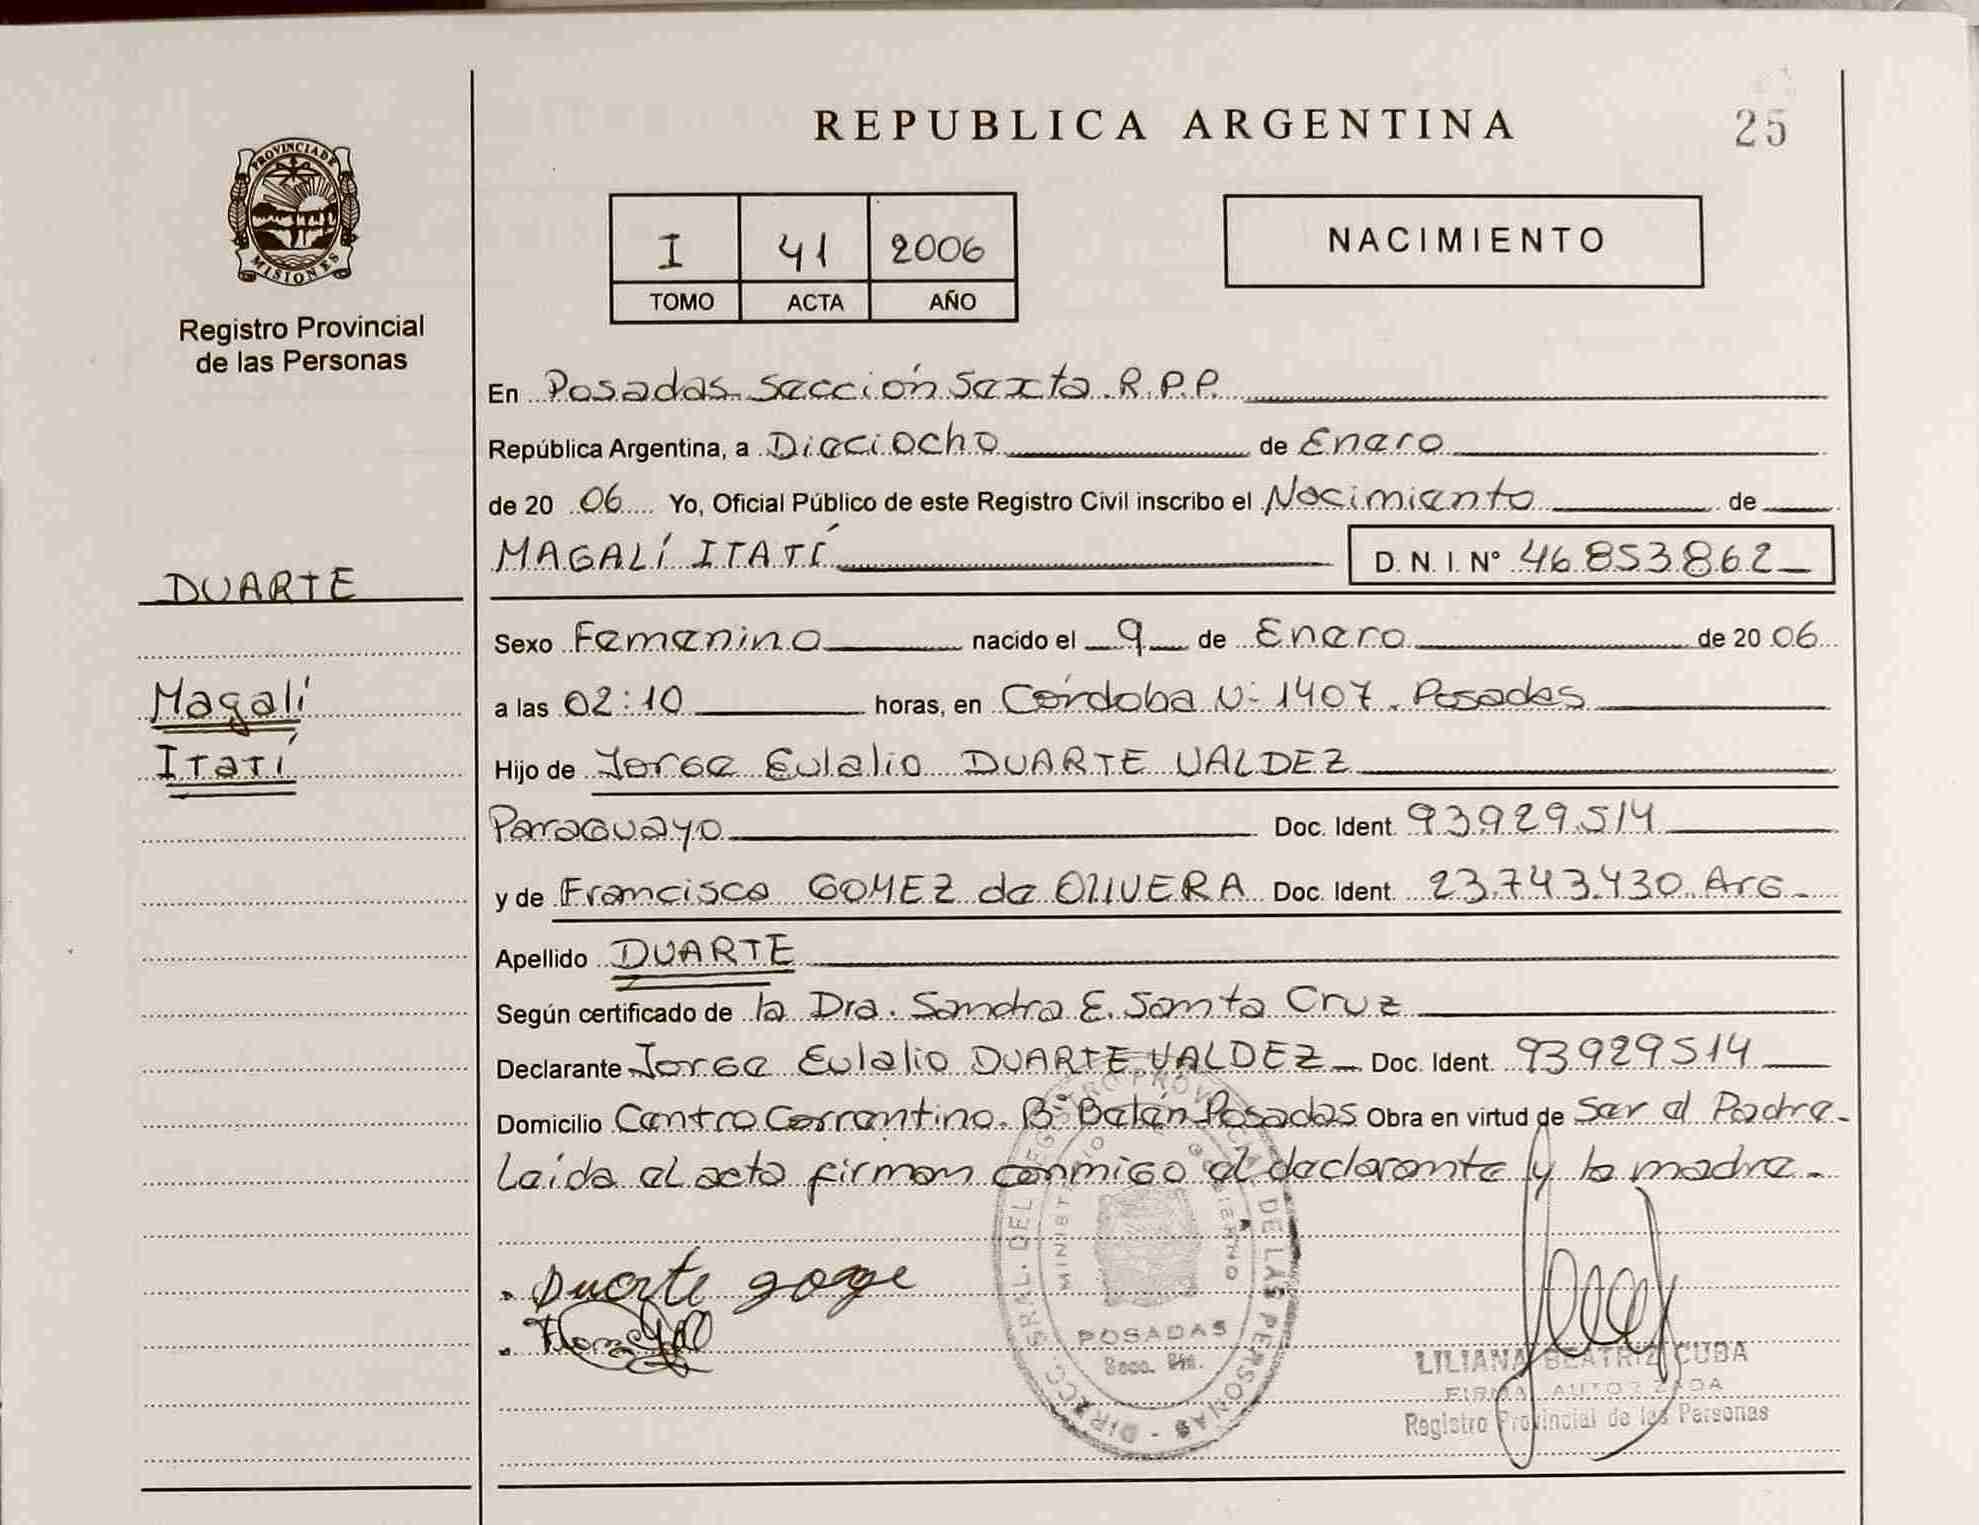 REPUBLICA ARGENTINA
25
PROVINCIA DE
MISIONES
Registro Provincial
de las Personas
I 41 2006
TOMO ACTA AÑO
NACIMIENTO
En Posadas. Sección Sexta. R.P.P.
República Argentina, a Dieciocho de Enero
de 20 06 Yo, Oficial Público de este Registro Civil inscribo el Nacimiento de
MAGALÍ ITATÍ D. N. I. N° 46853862
DUARTE
Magalí
Itatí
Sexo Femenino nacido el 9 de Enero de 20 06
a las 02:10 horas, en Córdoba N° 1407. Posadas
Hijo de Jorge Eulalio DUARTE VALDEZ
Paraguayo Doc. Ident. 93929514
y de Francisca GOMEZ de OLIVERA Doc. Ident. 23.743.430. Arg.
Apellido DUARTE
Según certificado de la Dra. Sandra E. Santa Cruz
Declarante Jorge Eulalio DUARTE VALDEZ Doc. Ident. 93929514
Domicilio Centro Correntino. B° Belén Posadas Obra en virtud de Ser el Padre.
Leída el acta firman conmigo el declarante y la madre.
Duarte Jorge
DIRECC. GRAL. DEL REGISTRO PROVINCIAL DE LAS PERSONAS
MINISTERIO GOBIERNO
POSADAS
LILIANA BEATRIZ CUBA
FIRMA AUTORIZADA
Registro Provincial de las Personas